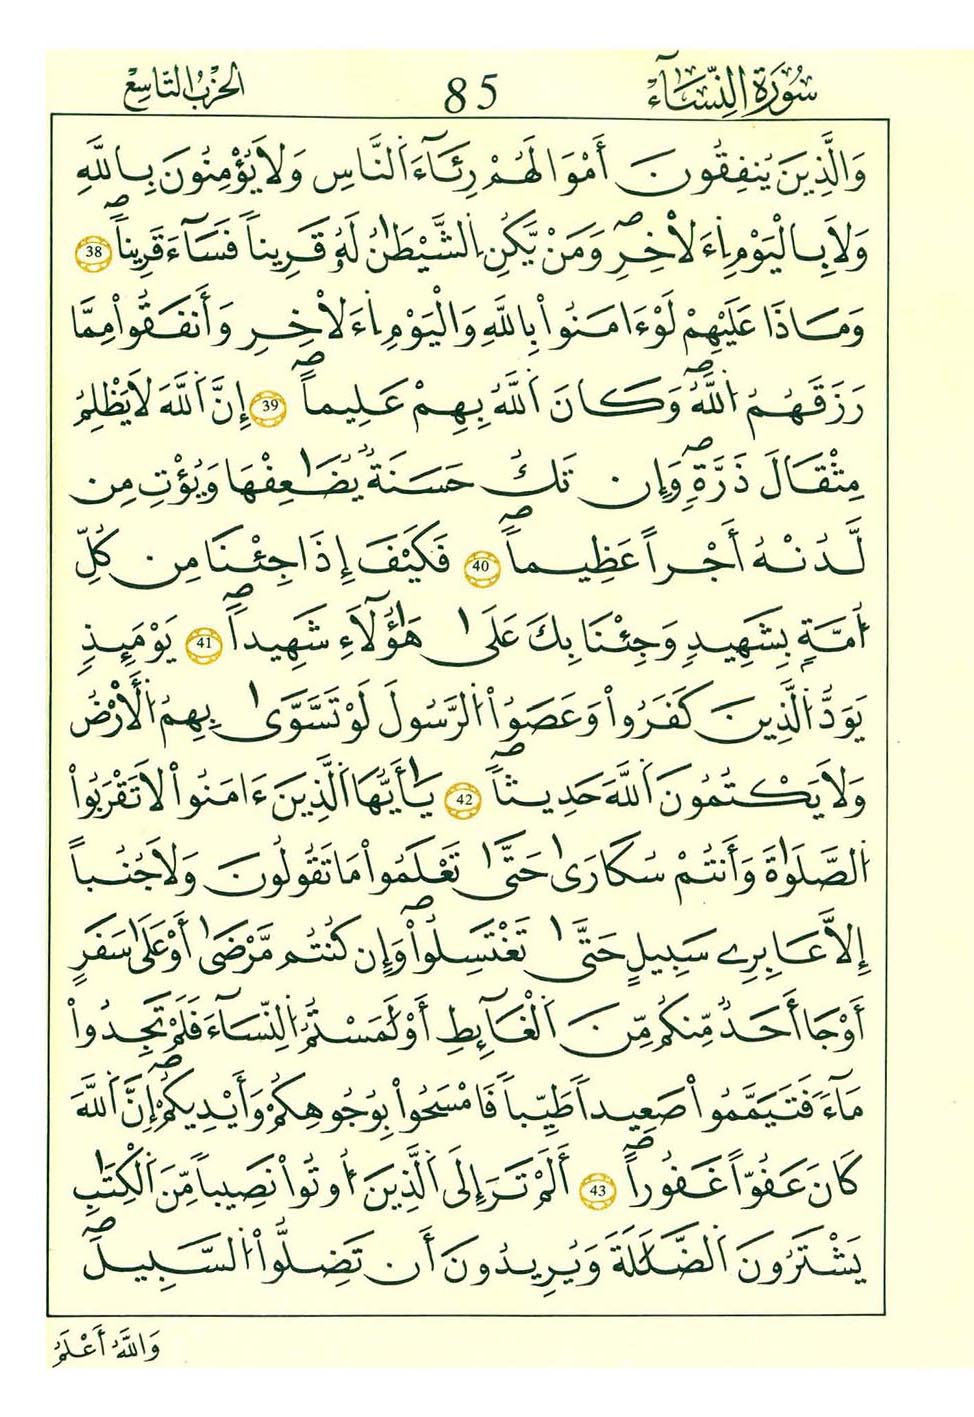 سُورَةُ النِّسَآءِ
85
الحِزْبُ التَّاسِعُ
وَالَّذِينَ يُنفِقُونَ أَمْوَالَهُمْ رِئَآءَ اَ۬لنَّاسِ وَلَا يُؤْمِنُونَ بِاللَّهِ
وَلَا بِالْيَوْمِ اِ۬ءَلَاْخِرِۖ وَمَنْ يَّكُنِ اِ۬لشَّيْطَٰنُ لَهُۥ قَرِيناٗ فَسَآءَ قَرِيناٗۖ 38
وَمَاذَا عَلَيْهِمْ لَوْ ءَامَنُواْ بِاللَّهِ وَالْيَوْمِ اِ۬ءَلَاْخِرِ وَأَنفَقُواْ مِمَّا
رَزَقَهُمُ اُ۬للَّهُۖ وَكَانَ اَ۬للَّهُ بِهِمْ عَلِيماًۖ 39 إِنَّ اَ۬للَّهَ لَا يَظْلِمُ
مِثْقَالَ ذَرَّةٖۖ وَإِن تَكُ حَسَنَةٞ يُضَٰعِفْهَا وَيُؤْتِ مِن
لَّدُنْهُ أَجْراً عَظِيماٗۖ 40 فَكَيْفَ إِذَا جِئْنَا مِن كُلِّ
أُمَّةِۢ بِشَهِيدٖ وَجِئْنَا بِكَ عَلَىٰ هَٰٓؤُلَآءِ شَهِيداٗۖ 41 يَوْمَئِذٖ
يَوَدُّ اُ۬لَّذِينَ كَفَرُواْ وَعَصَوُاْ اُ۬لرَّسُولَ لَوْ تَسَّوَّىٰ بِهِمُ اُ۬لْأَرْضُ
وَلَا يَكْتُمُونَ اَ۬للَّهَ حَدِيثاٗۖ 42 يَٰٓأَيُّهَا اَ۬لَّذِينَ ءَامَنُواْ لَا تَقْرَبُواْ
اُ۬لصَّلَوٰةَ وَأَنتُمْ سُكَارَىٰ حَتَّىٰ تَعْلَمُواْ مَا تَقُولُونَ وَلَا جُنُباً
إِلَّا عَابِرِے سَبِيلٍ حَتَّىٰ تَغْتَسِلُواْۖ وَإِن كُنتُم مَّرْضَىٰ أَوْ عَلَىٰ سَفَرٍ
أَوْ جَا أَحَدٞ مِّنكُم مِّنَ اَ۬لْغَآئِطِ أَوْ لَٰمَسْتُمُ اُ۬لنِّسَآءَ فَلَمْ تَجِدُواْ
مَآءٗ فَتَيَمَّمُواْ صَعِيداٗ طَيِّباٗ فَامْسَحُواْ بِوُجُوهِكُمْ وَأَيْدِيكُمْۖ إِنَّ اَ۬للَّهَ
كَانَ عَفُوّاً غَفُوراًۖ 43 أَلَمْ تَرَ إِلَى اَ۬لَّذِينَ أُوتُواْ نَصِيباٗ مِّنَ اَ۬لْكِتَٰبِ
يَشْتَرُونَ اَ۬لضَّلَٰلَةَ وَيُرِيدُونَ أَن تَضِلُّواْ اُ۬لسَّبِيلَۖ
وَاللَّهُ أَعْلَمُ